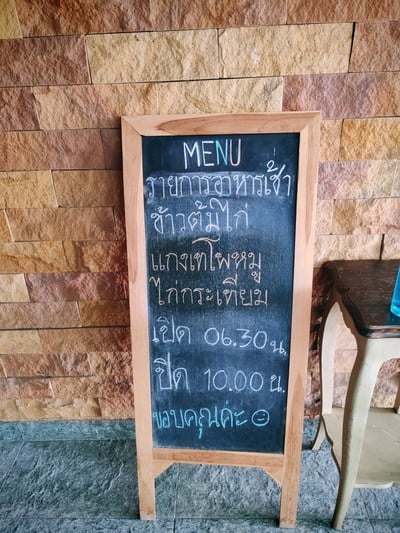 MENU
รายการอาหารเช้า
ข้าวต้มไก่
แกงเทโพหมู
ไก่กระเทียม
เปิด 06.30 น.
ปิด 10.00 น.
ขอบคุณค่ะ☺